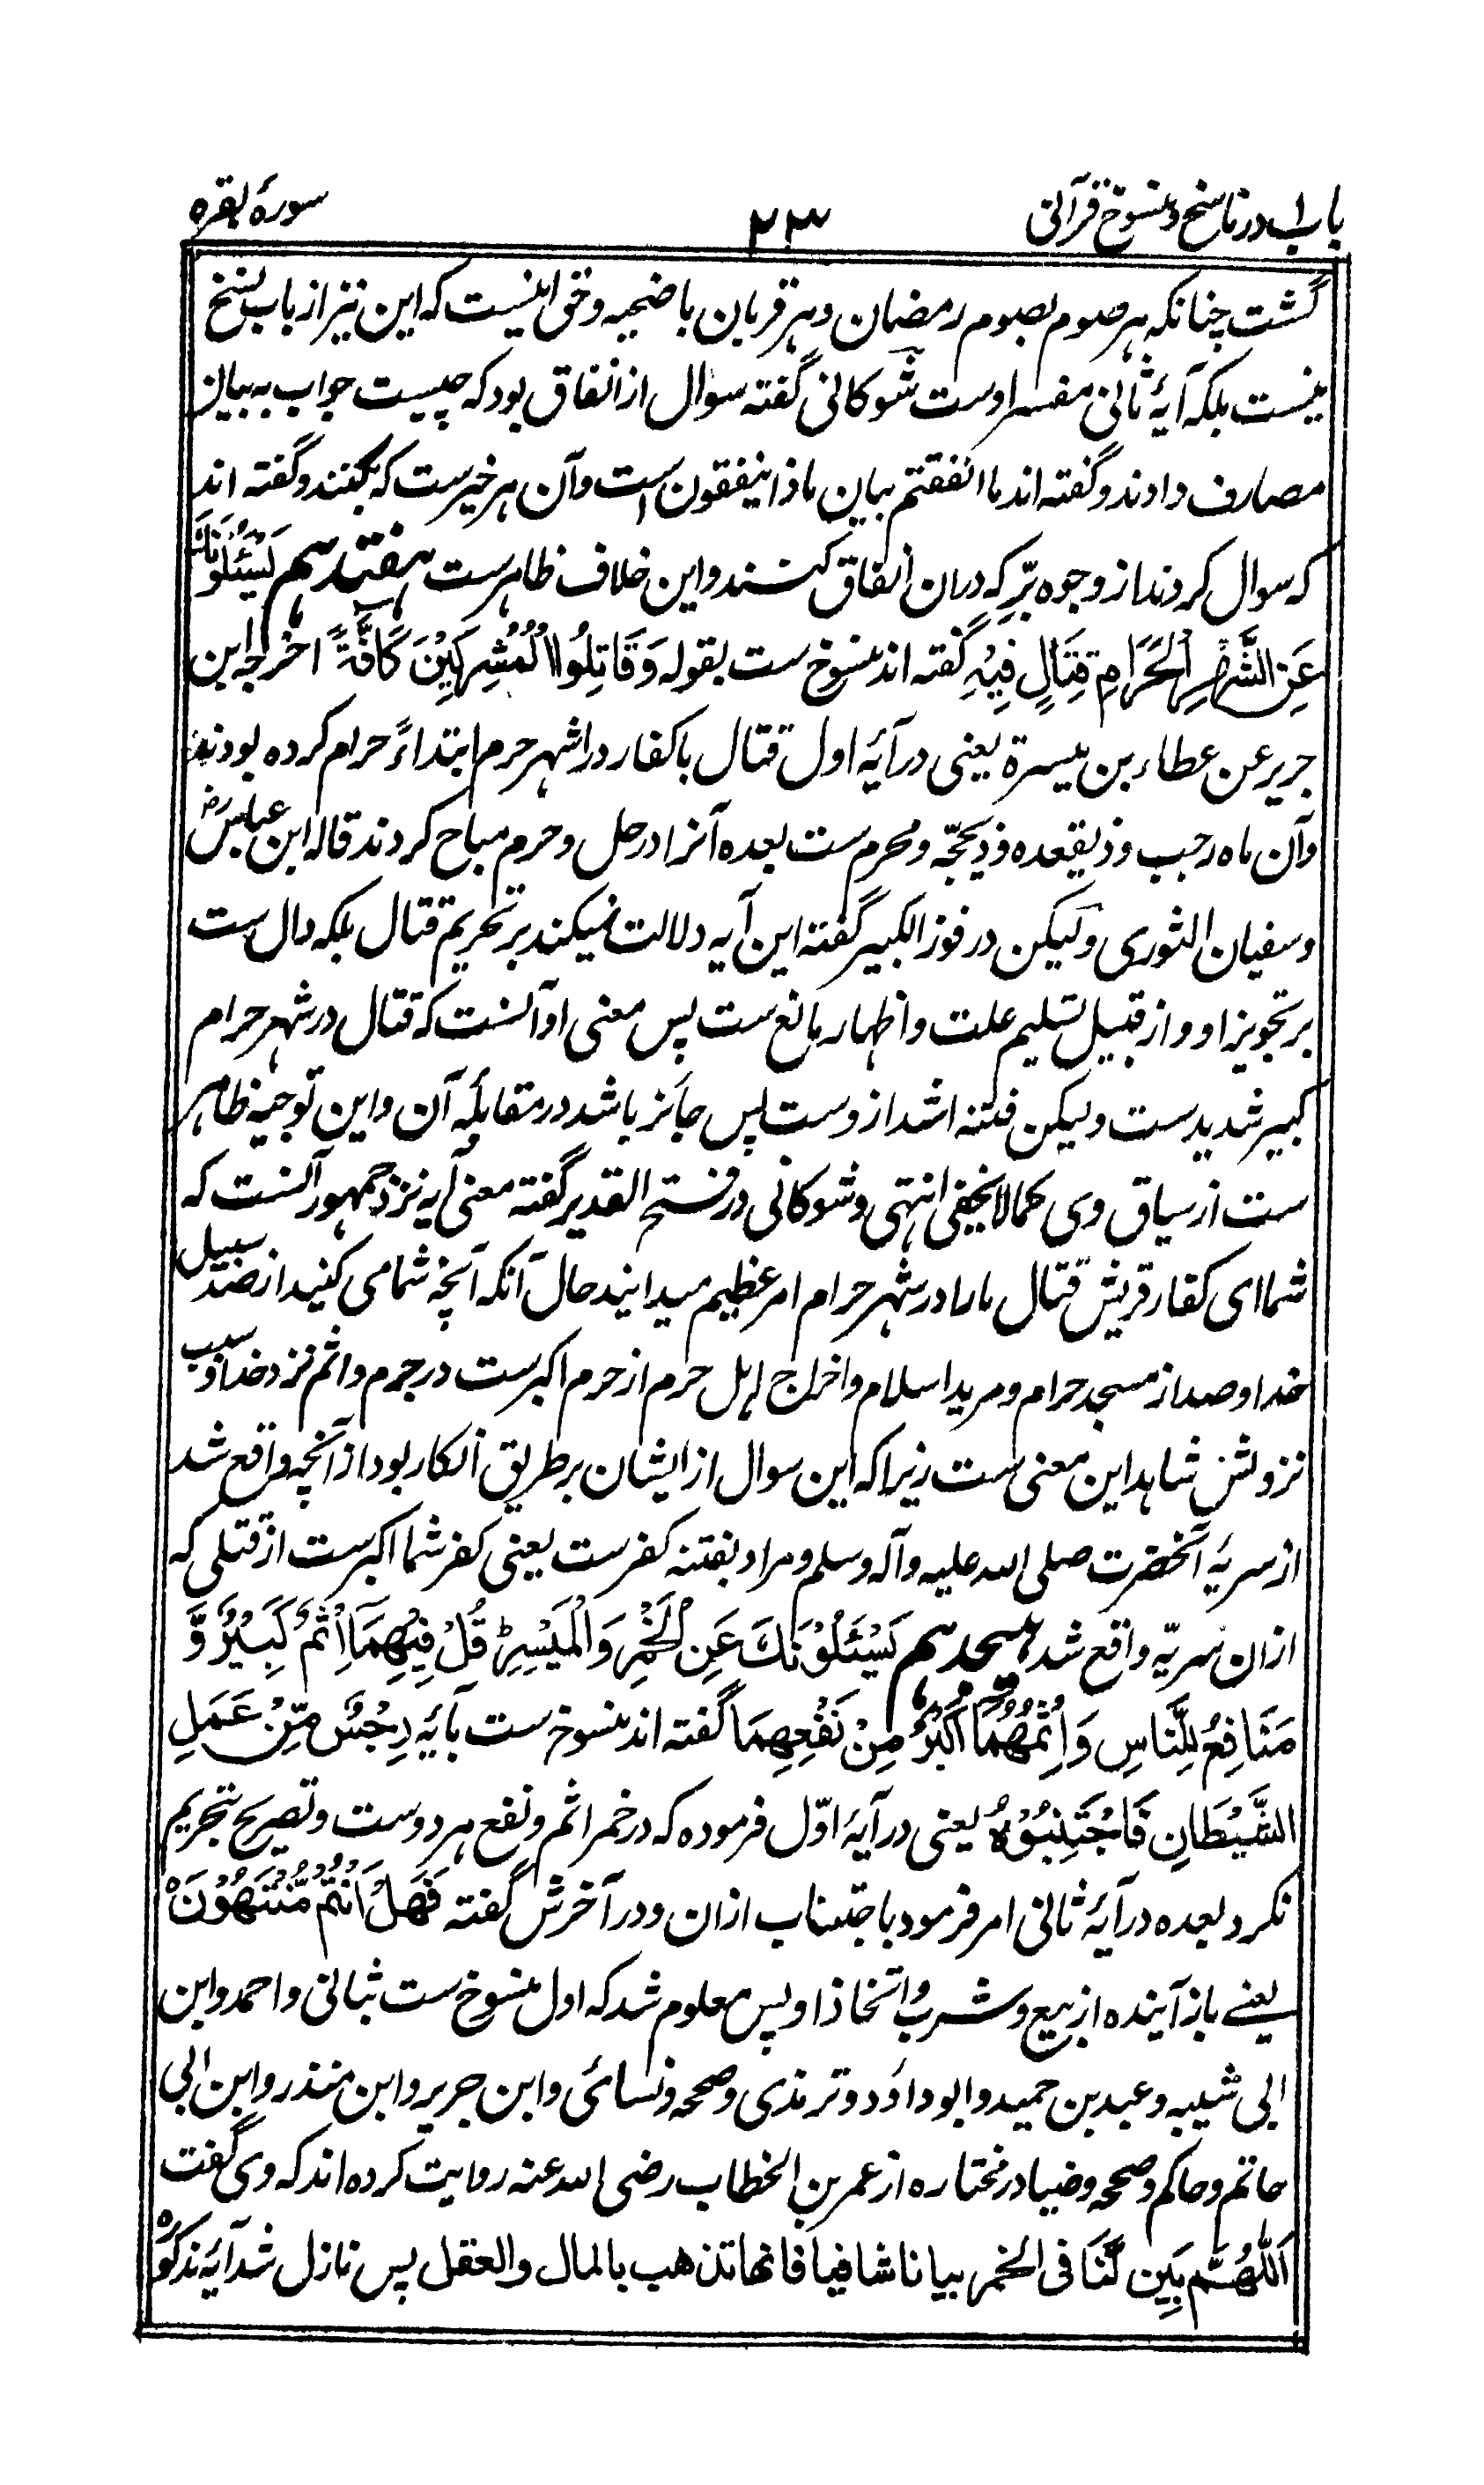 باب ا در ناسخ و منسوخ قرآنی
۲۳
سورهٔ بقره
گشت چنانکه هر صوم بصوم رمضان و هر قربان باضحیه و حق اینست که این نیز از باب نسخ
نیست بلکه آیهٔ ثانی مفسر اوست شوکانی گفته سوال از انفاق بود که چیست جواب به بیان
مصارف دادند و گفته اند ما انفقتم بیان ماذا ینفقون است و آن هر خیرست که بکنند و گفته اند
که سوال کردند از وجوه برّ که دران انفاق کنند و این خلاف ظاهرست هفتدهم یَسْئَلُوْنَكَ
عَنِ الشَّهْرِ الْحَرَامِ قِتَالٍ فِیْهِ گفته اند منسوخ ست بقوله وَ قَاتِلُوا الْمُشْرِكِیْنَ كَافَّةً اخرجه ابن
جریر عن عطاء بن میسرة یعنی در آیهٔ اول قتال با کفار در اشهر حرم ابتداءً حرام کرده بودند
و آن ماه رجب و ذیقعده و ذیحجّه و محرم ست بعده آنرا در حل و حرم مباح کردند قاله ابن عباس رض
و سفیان الثوری و لیکن در فوز الکبیر گفته این آیه دلالت نمیکند بر تحریم قتال بلکه دال ست
بر تجویز او و از قبیل تسلیم علت و اظهار مانع ست پس معنی او آنست که قتال در شهر حرام
کبیر شدید ست و لیکن فتنه اشد از وست پس جائز باشد در مقابلهٔ آن و این توجیه ظاهر
ست از سیاق وی کما لا یخفی انتهی و شوکانی در فتح القدیر گفته معنی آیه نزد جمهور آنست که
شما ای کفار قریش قتال ما را در شهر حرام امر عظیم میدانید حال آنکه آنچه شما می کنید از صد سبیل
خدا و صد از مسجد حرام و مرید اسلام و اخراج اهل حرم از حرم اکبرست در جرم و اثم نزد خدا و سبب
نزولش شاهد این معنی ست زیرا که این سوال از ایشان بر طریق انکار بود از آنچه واقع شد
از سریهٔ آنحضرت صلی الله علیه و آله و سلم و مراد بفتنه کفرست یعنی کفر شما اکبرست از قتلی که
ازان سریّه واقع شد هیجدهم یَسْئَلُوْنَكَ عَنِ الْخَمْرِ وَ الْمَیْسِرِ قُلْ فِیْهِمَا اِثْمٌ كَبِیْرٌ وَّ
مَنَافِعُ لِلنَّاسِ وَ اِثْمُهُمَا اَكْبَرُ مِنْ نَفْعِهِمَا گفته اند منسوخ ست بآیه رِجْسٌ مِّنْ عَمَلِ
الشَّیْطَانِ فَاجْتَنِبُوْهُ یعنی در آیهٔ اوّل فرموده که در خمر اثم و نفع هر دوست و تصریح بتحریم
نکرد بعده در آیهٔ ثانی امر فرمود باجتناب ازان و در آخرش گفته فَهَلْ اَنْتُمْ مُّنْتَهُوْنَ
یعنے باز آینده از بیع و شرب و اتخاذ او پس معلوم شد که اول منسوخ ست بثانی و احمد و ابن
ابی شیبه و عبد بن حمید و ابو داؤد و ترمذی و صححه و نسائی و ابن جریر و ابن منذر و ابن ابی
حاتم و حاکم و صححه و ضیا در مختاره از عمر بن الخطاب رضی الله عنه روایت کرده اند که وی گفت
اَللّٰهُمَّ بَیِّن لَنَا فی الخمر بیانا شافیا فانها تذهب بالمال والعقل پس نازل شد آیهٔ مذکوره